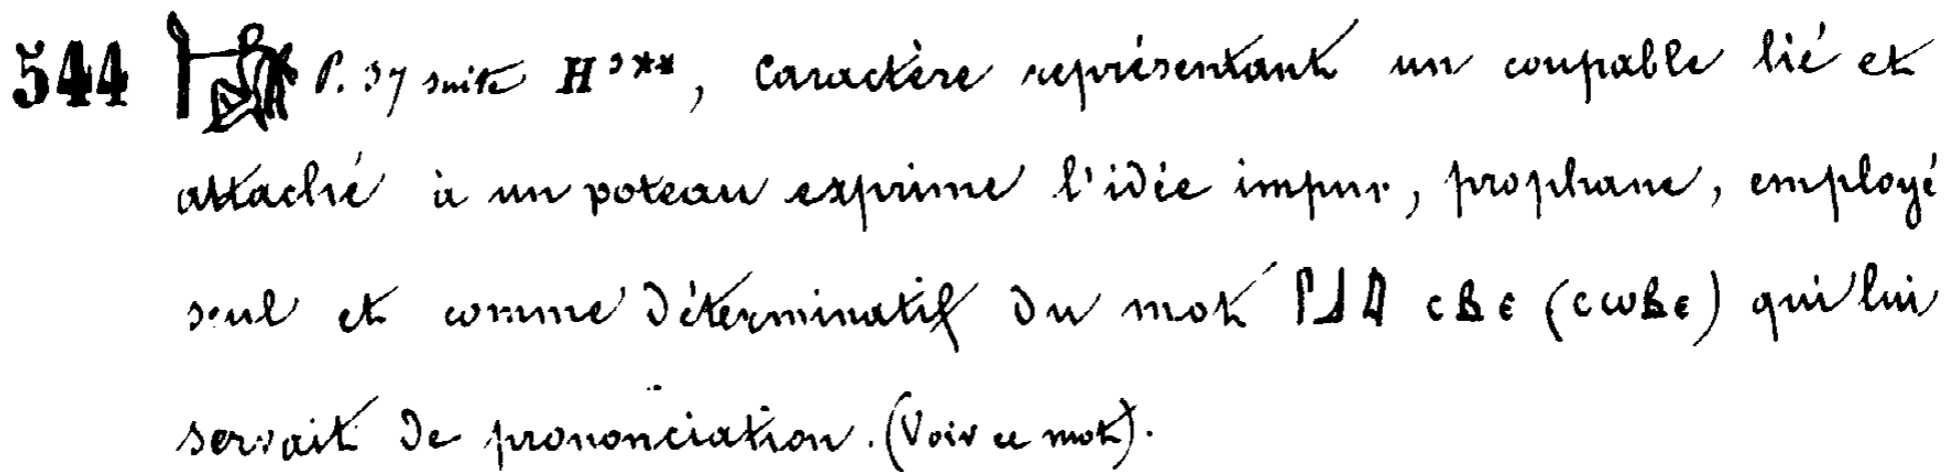 544 𓀐 P. 37 suite H³**, caractère représentant un coupable lié et
attaché à un poteau exprime l'idée impur, prophane, employé
seul et comme déterminatif du mot 𓋴𓃀𓇋 ⲥⲃⲉ (ⲥⲱⲃⲉ) qui lui
servait de prononciation. (Voir ce mot).